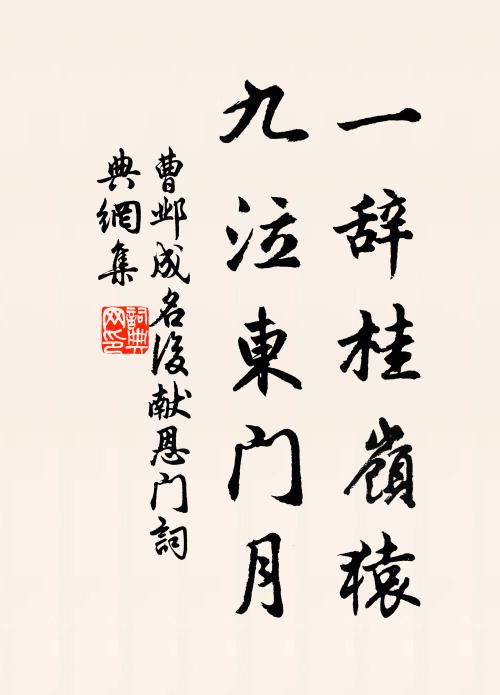 一辞桂嶺猿
九泣東门月
曹邺成名後献恩门詞
典網集
詞典网印